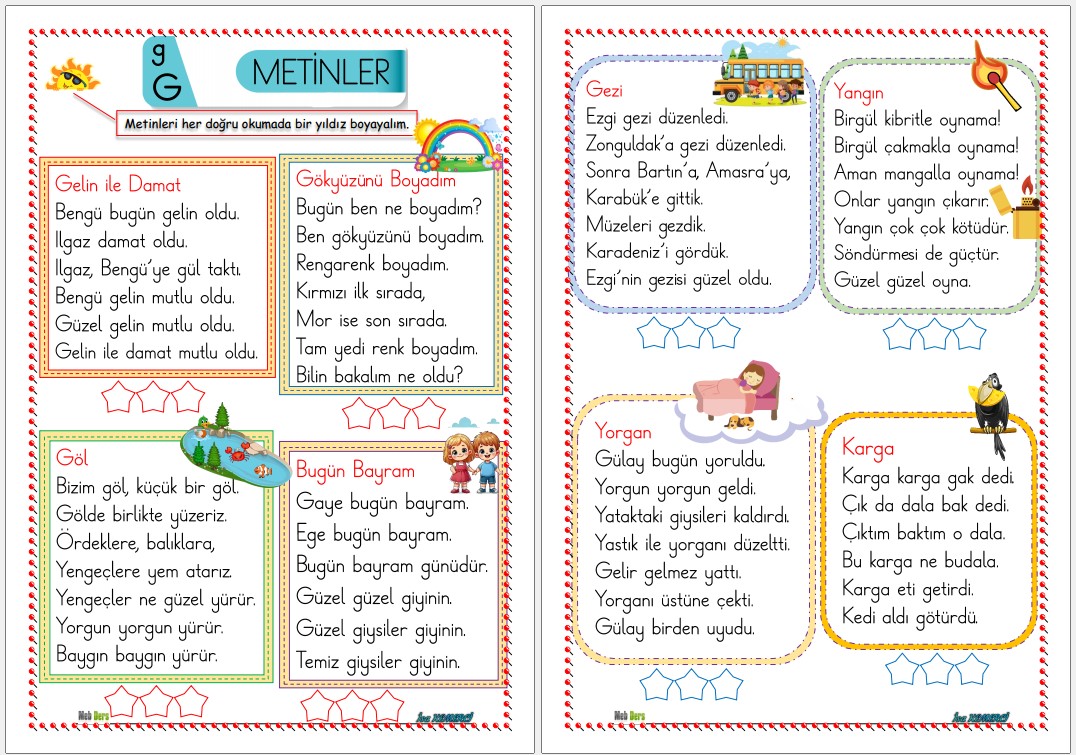 g
G
METİNLER
Metinleri her doğru okumada bir yıldız boyayalım.
Gelin ile Damat
Bengü bugün gelin oldu.
Ilgaz damat oldu.
Ilgaz, Bengü’ye gül taktı.
Bengü gelin mutlu oldu.
Güzel gelin mutlu oldu.
Gelin ile damat mutlu oldu.
Gökyüzünü Boyadım
Bugün ben ne boyadım?
Ben gökyüzünü boyadım.
Rengarenk boyadım.
Kırmızı ilk sırada,
Mor ise son sırada.
Tam yedi renk boyadım.
Bilin bakalım ne oldu?
Göl
Bizim göl, küçük bir göl.
Gölde birlikte yüzeriz.
Ördeklere, balıklara,
Yengeçlere yem atarız.
Yengeçler ne güzel yürür.
Yorgun yorgun yürür.
Baygın baygın yürür.
Bugün Bayram
Gaye bugün bayram.
Ege bugün bayram.
Bugün bayram günüdür.
Güzel güzel giyinin.
Güzel giysiler giyinin.
Temiz giysiler giyinin.
Meb Ders
Gezi
Ezgi gezi düzenledi.
Zonguldak’a gezi düzenledi.
Sonra Bartın’a, Amasra’ya,
Karabük’e gittik.
Müzeleri gezdik.
Karadeniz’i gördük.
Ezgi’nin gezisi güzel oldu.
Yangın
Birgül kibritle oynama!
Birgül çakmakla oynama!
Aman mangalla oynama!
Onlar yangın çıkarır.
Yangın çok çok kötüdür.
Söndürmesi de güçtür.
Güzel güzel oyna.
Yorgan
Gülay bugün yoruldu.
Yorgun yorgun geldi.
Yataktaki giysileri kaldırdı.
Yastık ile yorganı düzeltti.
Gelir gelmez yattı.
Yorganı üstüne çekti.
Gülay birden uyudu.
Karga
Karga karga gak dedi.
Çık da dala bak dedi.
Çıktım baktım o dala.
Bu karga ne budala.
Karga eti getirdi.
Kedi aldı götürdü.
Meb Ders